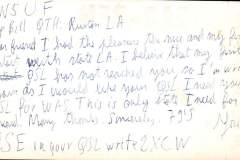 W5UF
Bill QTH: Ruston LA
friend I had the pleasure the nice and my first
with state LA. I believe that my first
QSL has not reached you, so I'm
now as I would like your QSL I need your
QSL for WAS. This is only state I need for
Many thanks. Sincerely. 73's
in your QSL write 2XCW